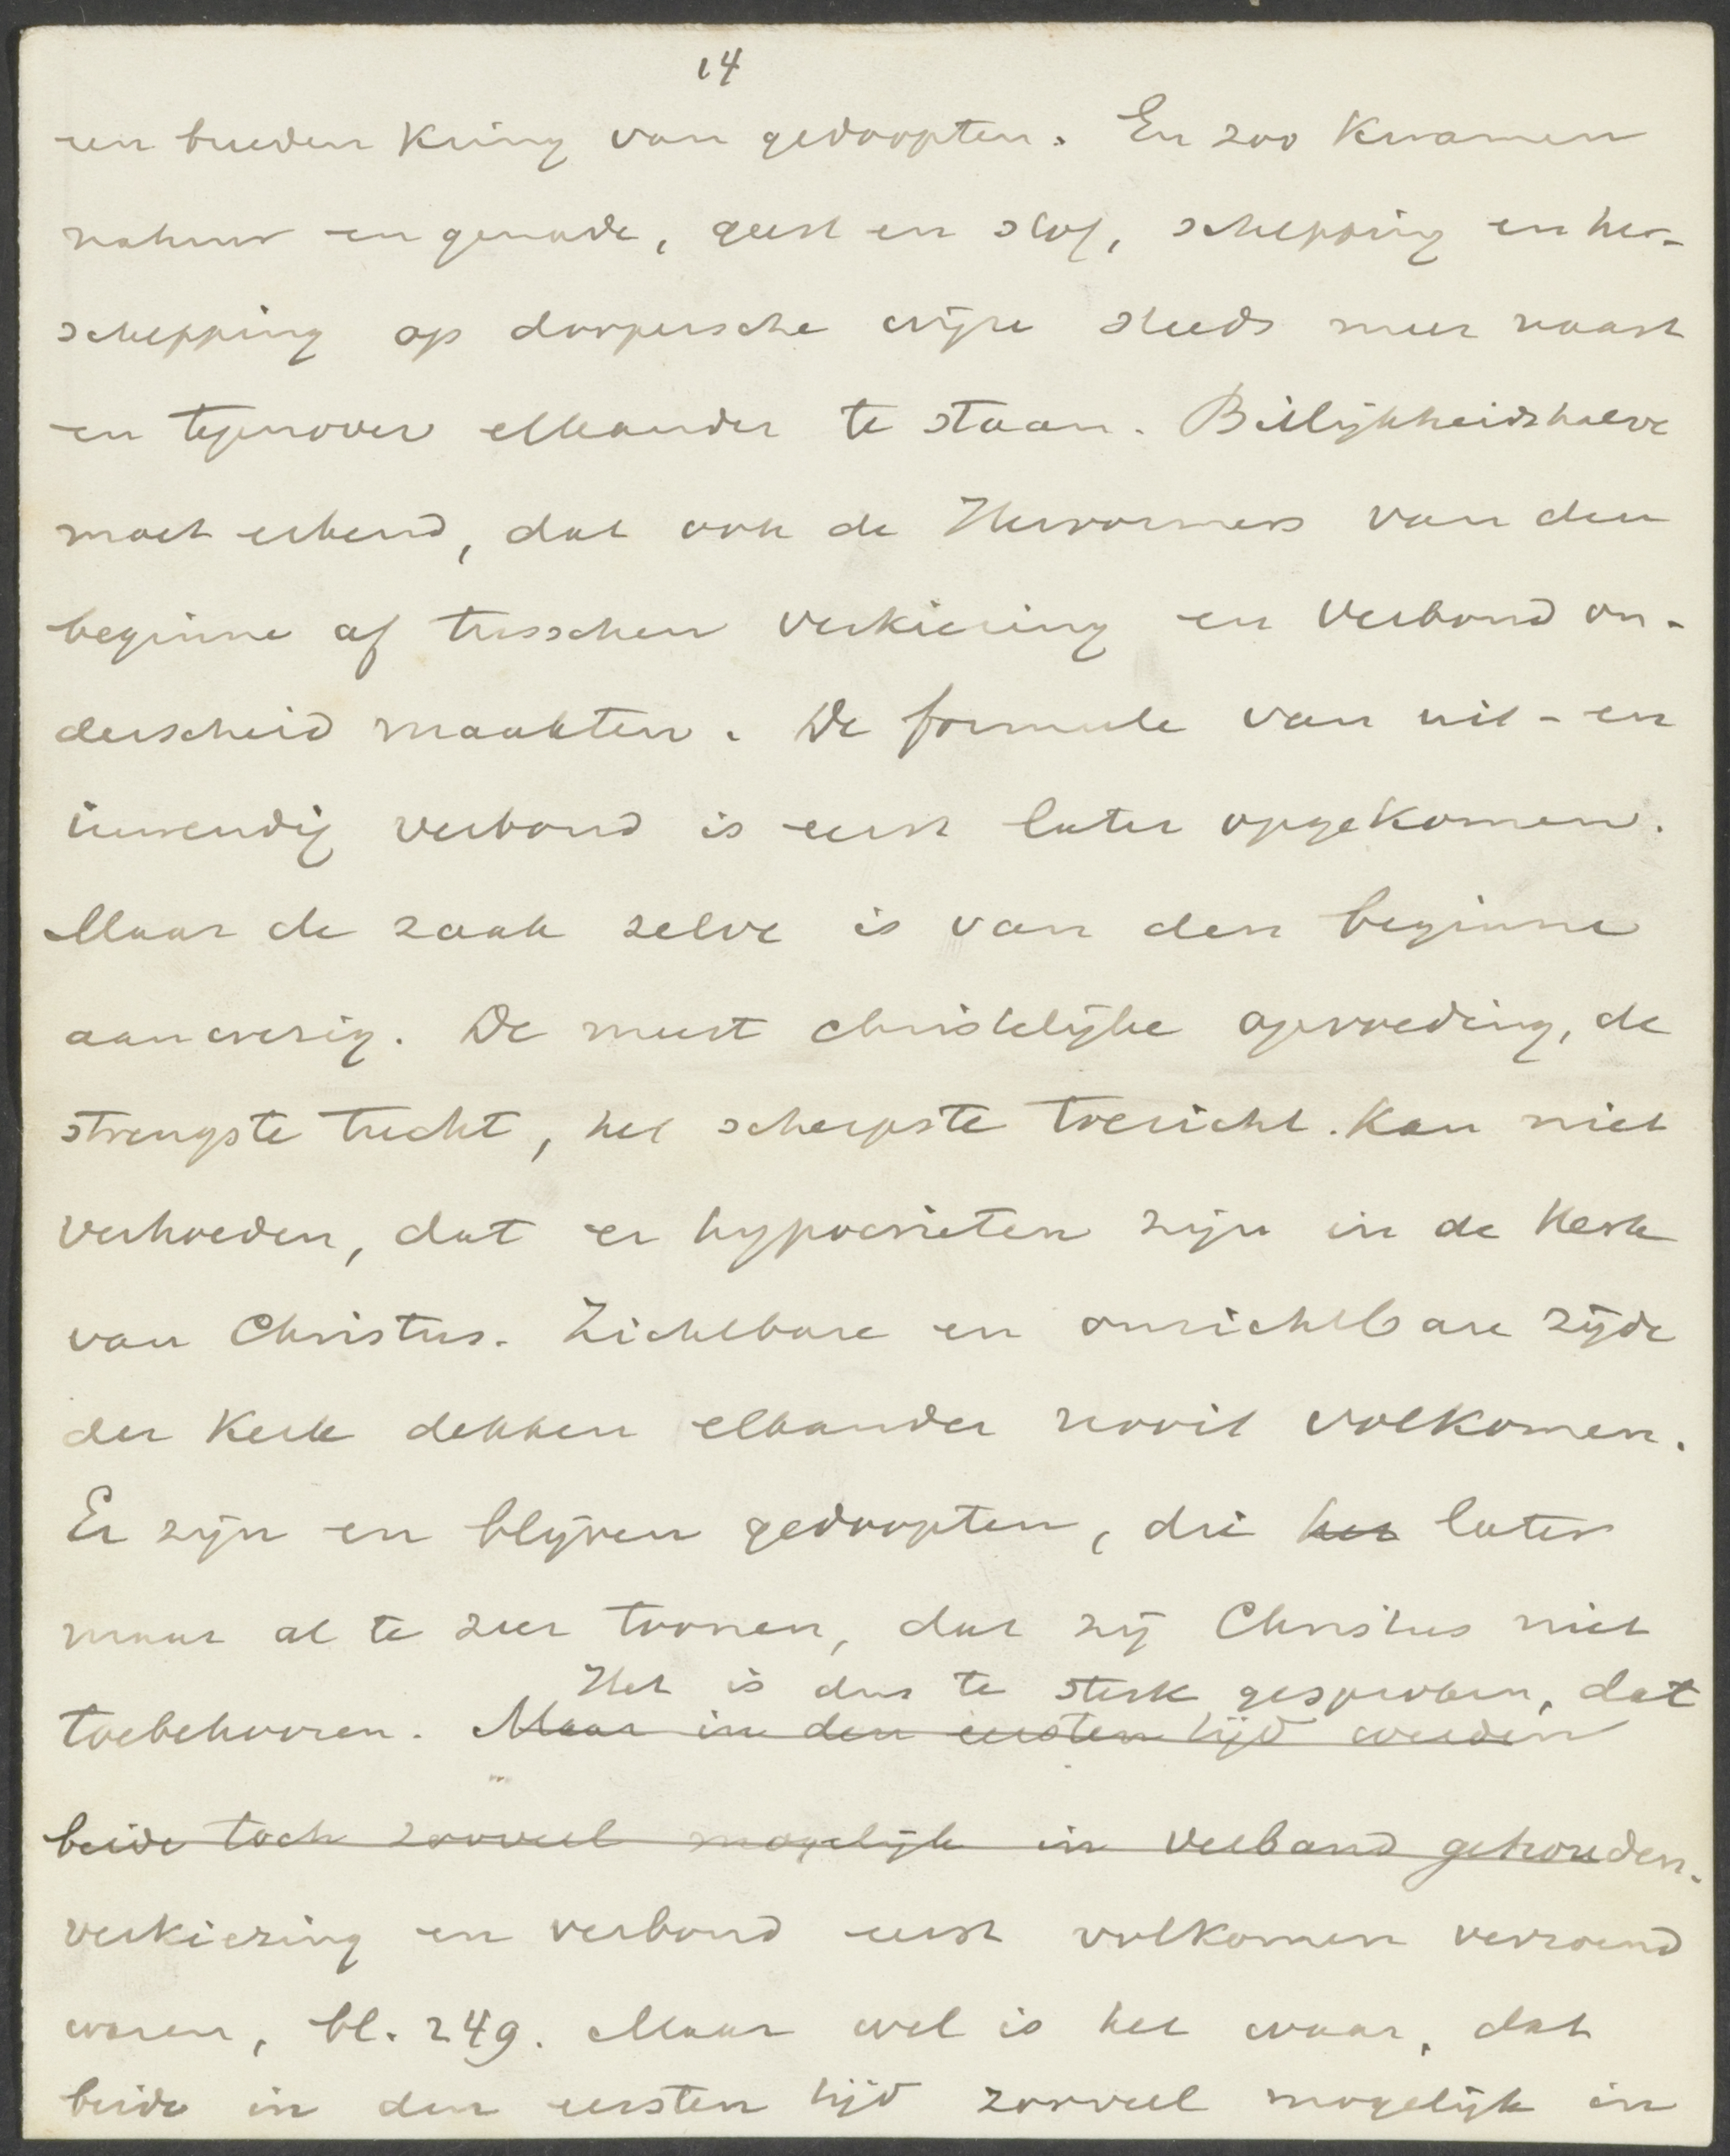 14
een breeden Kring van gedoopten. En zoo Kwamen
natuur en genade, geest en stof, schepping en her-
schepping op doopersche wijze steeds meer naast
en tegenover elkander te staan. Billijkheidshalve
moet erkend, dat ook de Hervormers van den
beginne af tusschen verkiezing en verbond on-
derscheid maakten. De formule van uit- en
inwendig verbond is eerst later opgekomen.
Maar de zaak zelve is van den beginne
aanwezig. De meest christelijke opvoeding, de
strengste tucht, het scherpste toezicht kan niet
verhoeden, dat er hypocrieten zijn in de Kerk
van Christus. Zichtbare en onzichtbare zijde
der Kerk dekken elkander nooit volkomen.
Er zijn en blijven gedoopten, die het later
maar al te zeer toonen, dat zij Christus niet
Het is dus te sterk gesproken, dat
toebehooren. Maar in den eersten tijd werden
beide toch zooveel mogelijk in verband gehouden.
verkiezing en verbond eerst volkomen verzoend
waren, bl. 249. Maar wel is het waar, dat
beide in den eersten tijd zooveel mogelijk in